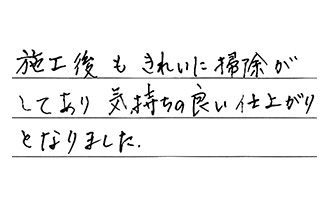 施工後もきれいに掃除が
してあり気持ちの良い仕上がり
となりました.